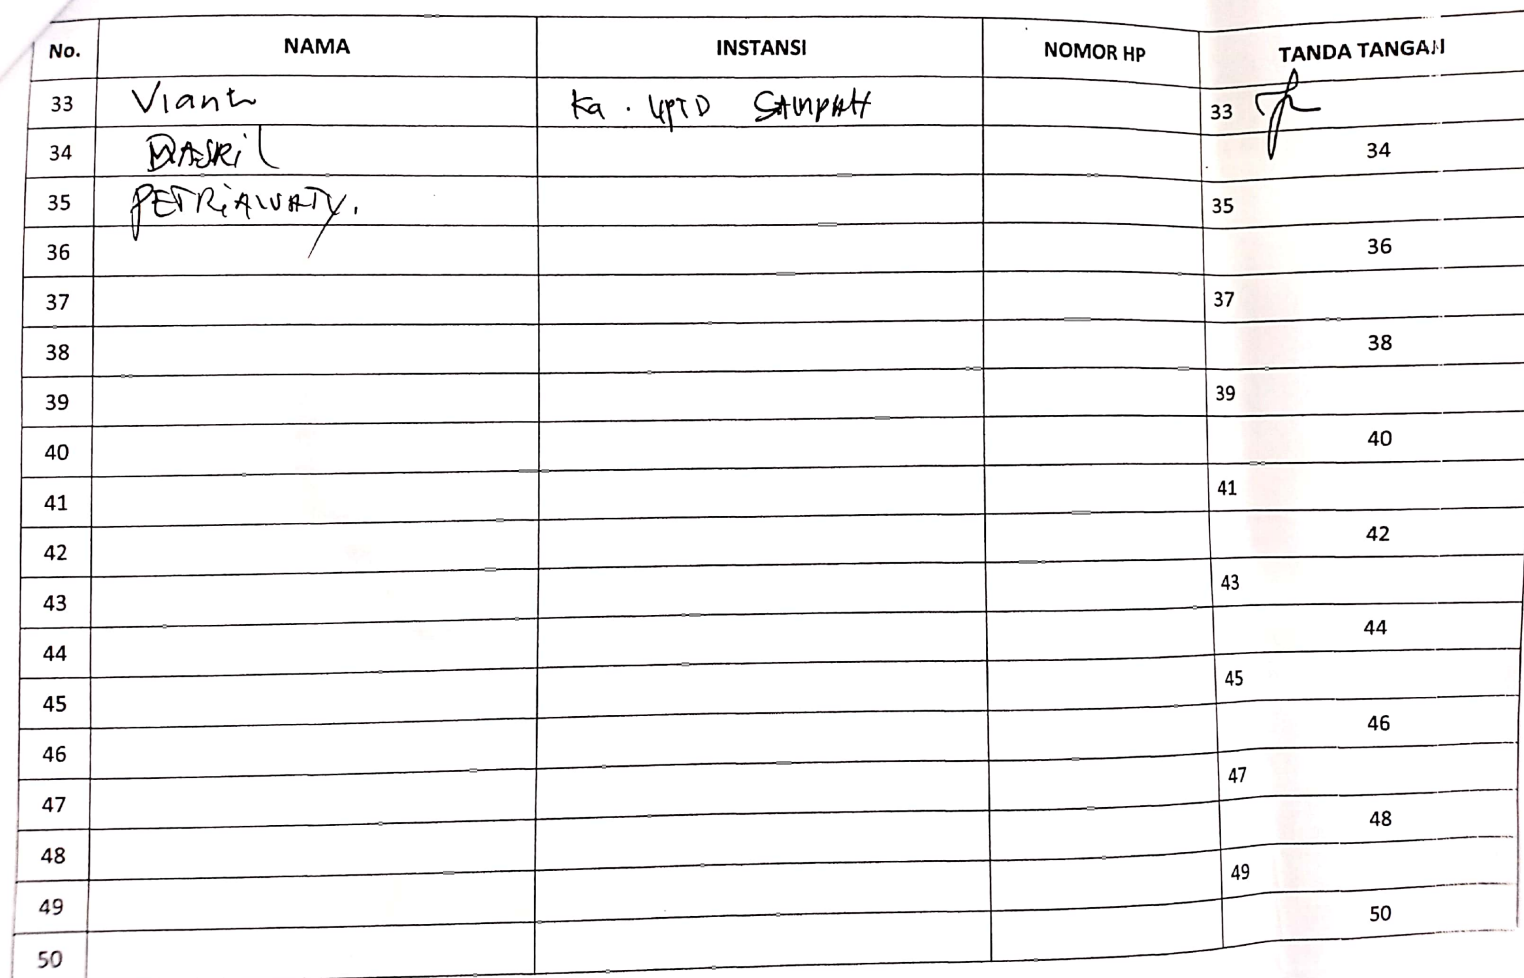 No. NAMA INSTANSI NOMOR HP TANDA TANGAN
33 Vianti Ka. UPTD SAMPAH 33
34 MASRil 34
35 PETRiAWATY. 35
36 36
37 37
38 38
39 39
40 40
41 41
42 42
43 43
44 44
45 45
46 46
47 47
48 48
49 49
50 50